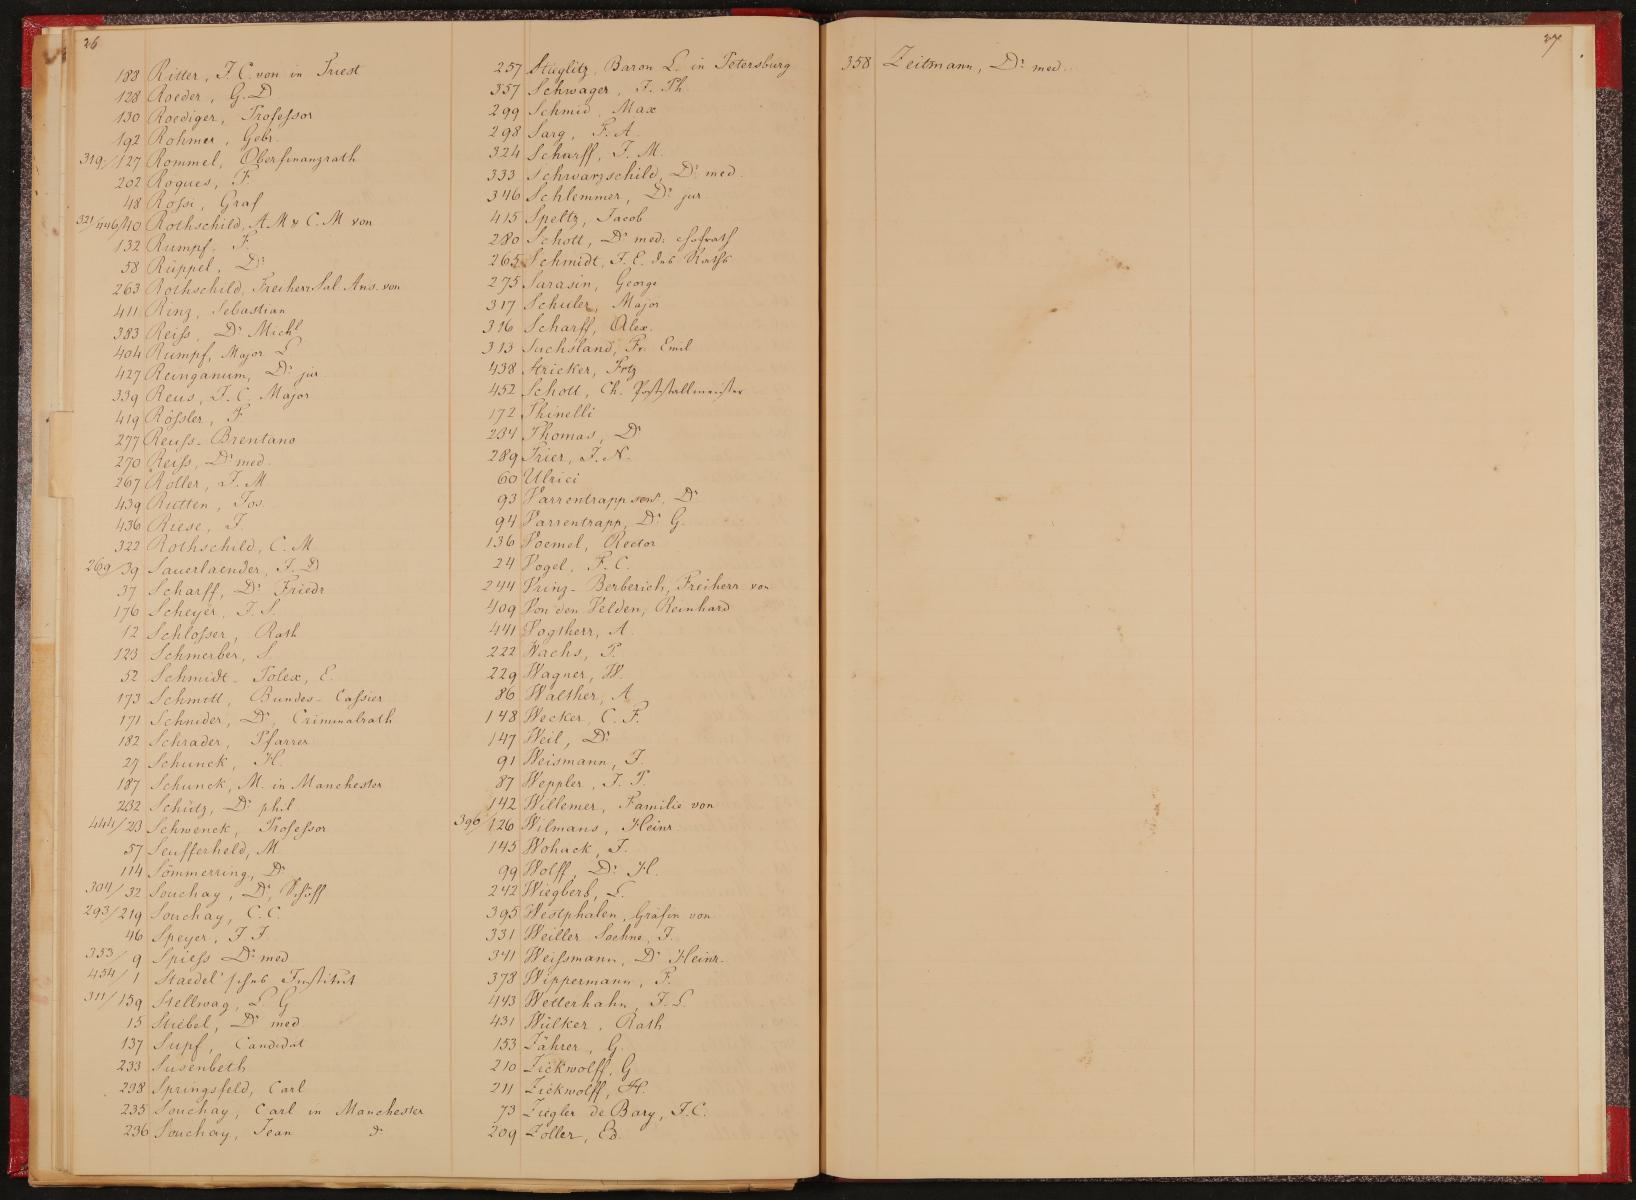 26
188 Ritter, J. C. von in Triest
128 Roeder, G. D
130 Roediger, Professor
192 Rohmer, Gebr.
319/127 Rommel, Oberfinanzrath
202 Roques, F.
48 Rossi, Graf
321/446/40 Rothschild, A. M & C. M von
132 Rumpf, F.
58 Rüppel, Dr
263 Rothschild, Freiherr Sal. Ans. von
411 Rinz, Sebastian
383 Reiss, Dr Michl
404 Rumpf, Major L
427 Reinganum, Dr jur
339 Reus, J. C. Major
419 Rössler, F.
277 Reuss-Brentano
270 Reiss, Dr med.
267 Roller, J. M
439 Rütten, Jos.
436 Riese, J.
322 Rothschild, C. M
269/39 Sauerlaender, J. D
37 Scharff, Dr Friedr
176 Scheyer, J. S.
12 Schlosser, Rath
123 Schmerber, S.
52 Schmidt-Polex, E.
173 Schmitt, Bundes-Cassier
171 Schnider, Dr, Criminalrath
182 Schrader, Pfarrer
29 Schunck, H.
187 Schunck, M. in Manchester
232 Schütz, Dr phil
444/23 Schwenck, Professor
57 Seufferheld, M
114 Sömmerring, Dr
304/32 Souchay, Dr, Schöff
293/219 Souchay, C. C.
46 Speyer, J. J.
353/9 Spiess Dr med
454/1 Staedel'sches Institut
311/159 Stellwag, L. G
15 Stiebel, Dr med
137 Supf, Candidat
233 Susenbeth
238 Springsfeld, Carl
235 Souchay, Carl in Manchester
236 Souchay, Jean do
257 Stieglitz, Baron L. in Petersburg
357 Schwager, J. Ph.
299 Schmid, Max
298 Sarg, F. A.
324 Scharff, J. M.
333 Schwarzschild, Dr med.
346 Schlemmer, Dr jur
415 Speltz, Jacob
280 Schott, Dr med: Hofrath
265 Schmidt, J. E. des Raths
275 Sarasin, George
317 Schuler, Major
316 Scharff, Alex.
313 Suchsland, Fr. Emil
438 Stricker, Frtz
452 Schott, Ch. Poststallmeister
172 Thinelli
234 Thomas, Dr
289 Trier, J. N.
60 Ulrici
93 Varrentrapp senr, Dr
94 Varrentrapp, Dr G.
136 Voemel, Rector
24 Vogel, F. C.
244 Vring-Berberich, Freiherr von
409 Von den Velden, Reinhard
441 Vogtherr, A.
222 Wachs, P.
229 Wagner, W.
86 Walther, A
148 Wecker, C. F.
147 Weil, Dr
91 Weismann, J.
87 Weppler, J. P.
142 Willemer, Familie von
396/126 Wilmans, Heinr.
145 Wohack, J.
99 Wolff, Dr H.
242 Wiegberb, L.
395 Westphalen, Gräfin von
331 Weiller Soehne, J.
341 Weissmann, Dr Heinr.
378 Wippermann, F.
443 Wetterhahn, J. L.
431 Wülker, Rath
153 Zährer, G.
210 Zickwolff, G
211 Zickwolff, H.
73 Ziegler de Bary, J. C.
209 Zoller, Ed.
27
358 Zeitmann, Dr med.